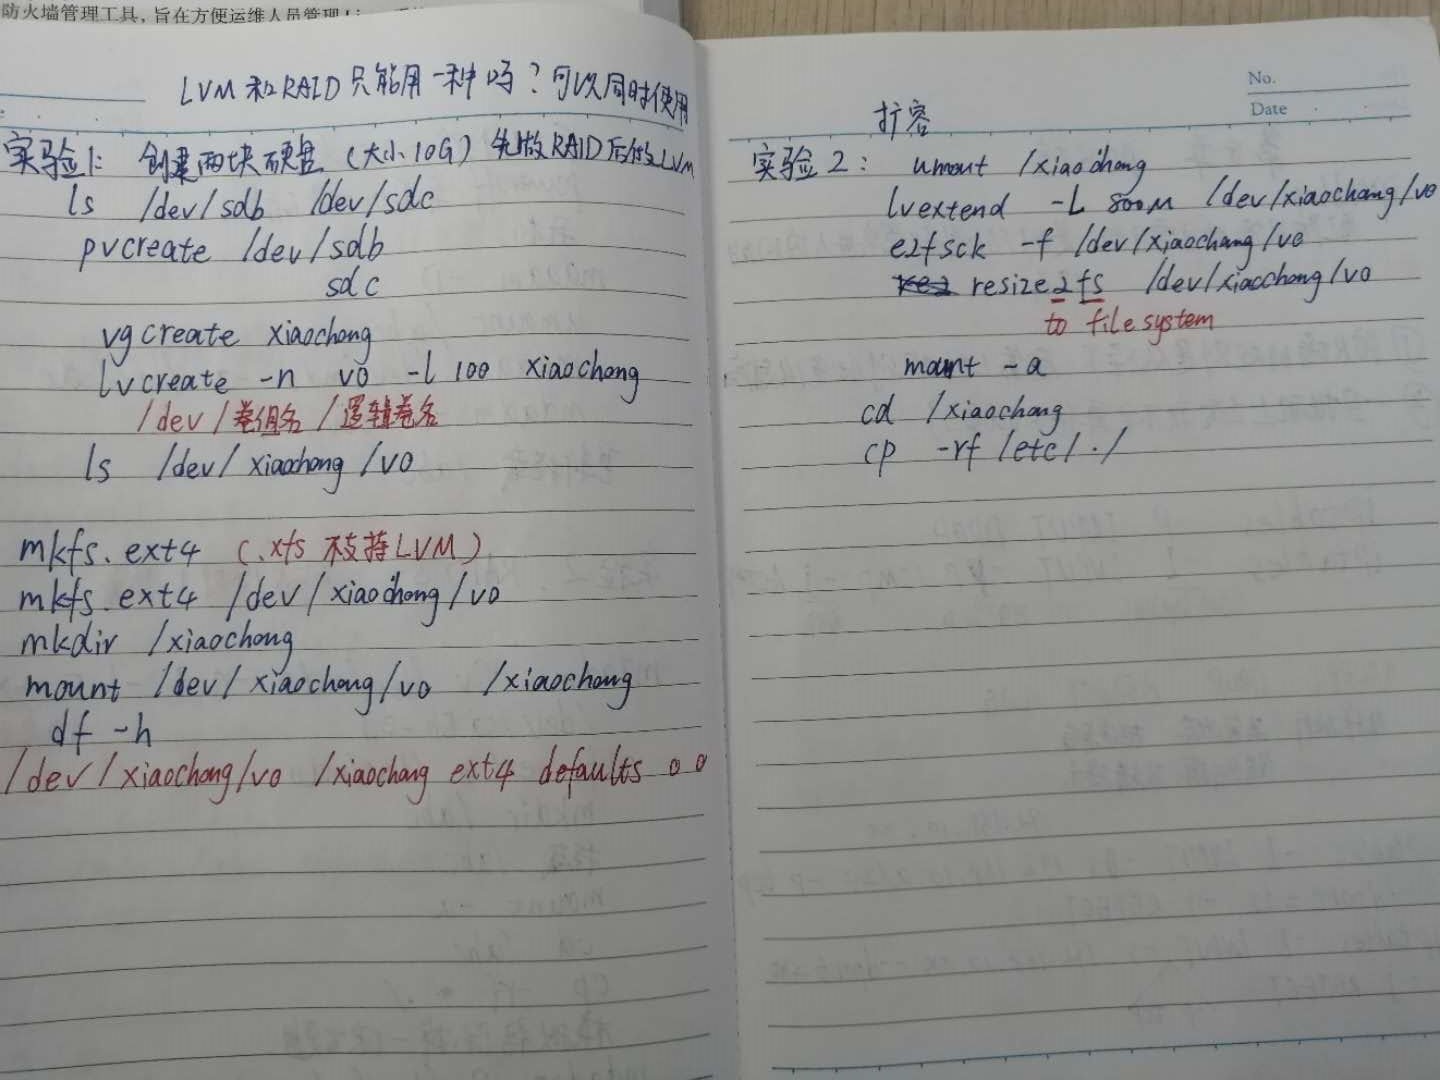 防火墙管理工具，旨在方便运维人员管理
LVM和RAID只能用一种吗？可以同时使用
实验1: 创建两块硬盘（大小10G）先做RAID后做LVM
ls /dev/sdb /dev/sdc
pvcreate /dev/sdb
sdc
vgcreate xiaochong
lvcreate -n vo -l 100 xiaochong
/dev/卷组名/逻辑卷名
ls /dev/xiaochong/vo
mkfs.ext4 (.xfs 不支持LVM)
mkfs.ext4 /dev/xiaochong/vo
mkdir /xiaochong
mount /dev/xiaochong/vo /xiaochong
df -h
/dev/xiaochong/vo /xiaochong ext4 defaults 0 0
No.
Date
扩容
实验2: umount /xiaochong
lvextend -L 800M /dev/xiaochong/vo
e2fsck -f /dev/xiaochong/vo
resize2fs /dev/xiaochong/vo
to file system
mount -a
cd /xiaochong
cp -rf /etc/ ./